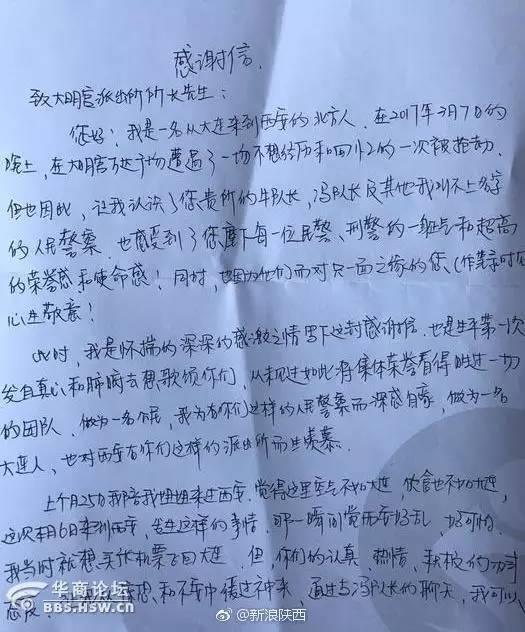 感谢信.
致大明宫派出所所长先生：
您好！我是一名从大连来到西安的北方人. 在2017年3月7日的
晚上，在大明宫万达广场遭遇了一场不想经历和回忆的一次被抢劫.
但也因此，让我认识了您贵所的牛队长，冯队长及其他我叫不上名字
的人民警察. 也感受到了您麾下每一位民警、刑警的一身正气和超高
的荣誉感和使命感！同时，也因为他们而对只一面之缘的您（作笔录时见
心生敬意！
此时，我是怀揣的深深的感激之情写下这封感谢信. 也是生平第一次
发自真心和肺腑去想歌颂你们，从未见过如此将集体荣誉看得胜过一切
的团队. 做为一名公民，我为有你们这样的人民警察而深感自豪，做为一名
大连人，也对西安有你们这样的派出所而生羡慕.
上个月25日我陪我姐姐来过西安. 觉得这里空气不如大连，饮食也不如大连，
这次本月6日来到西安，发生这样的事情. 那一瞬间觉西安好乱，好可怕.
我当时就想买张机票飞回大连. 但，你们的认真、热情、积极的办事
态度. 和不安中缓过神来，通过与冯队长的聊天，我可以
华商论坛
BBS.HSW.CN
@新浪陕西